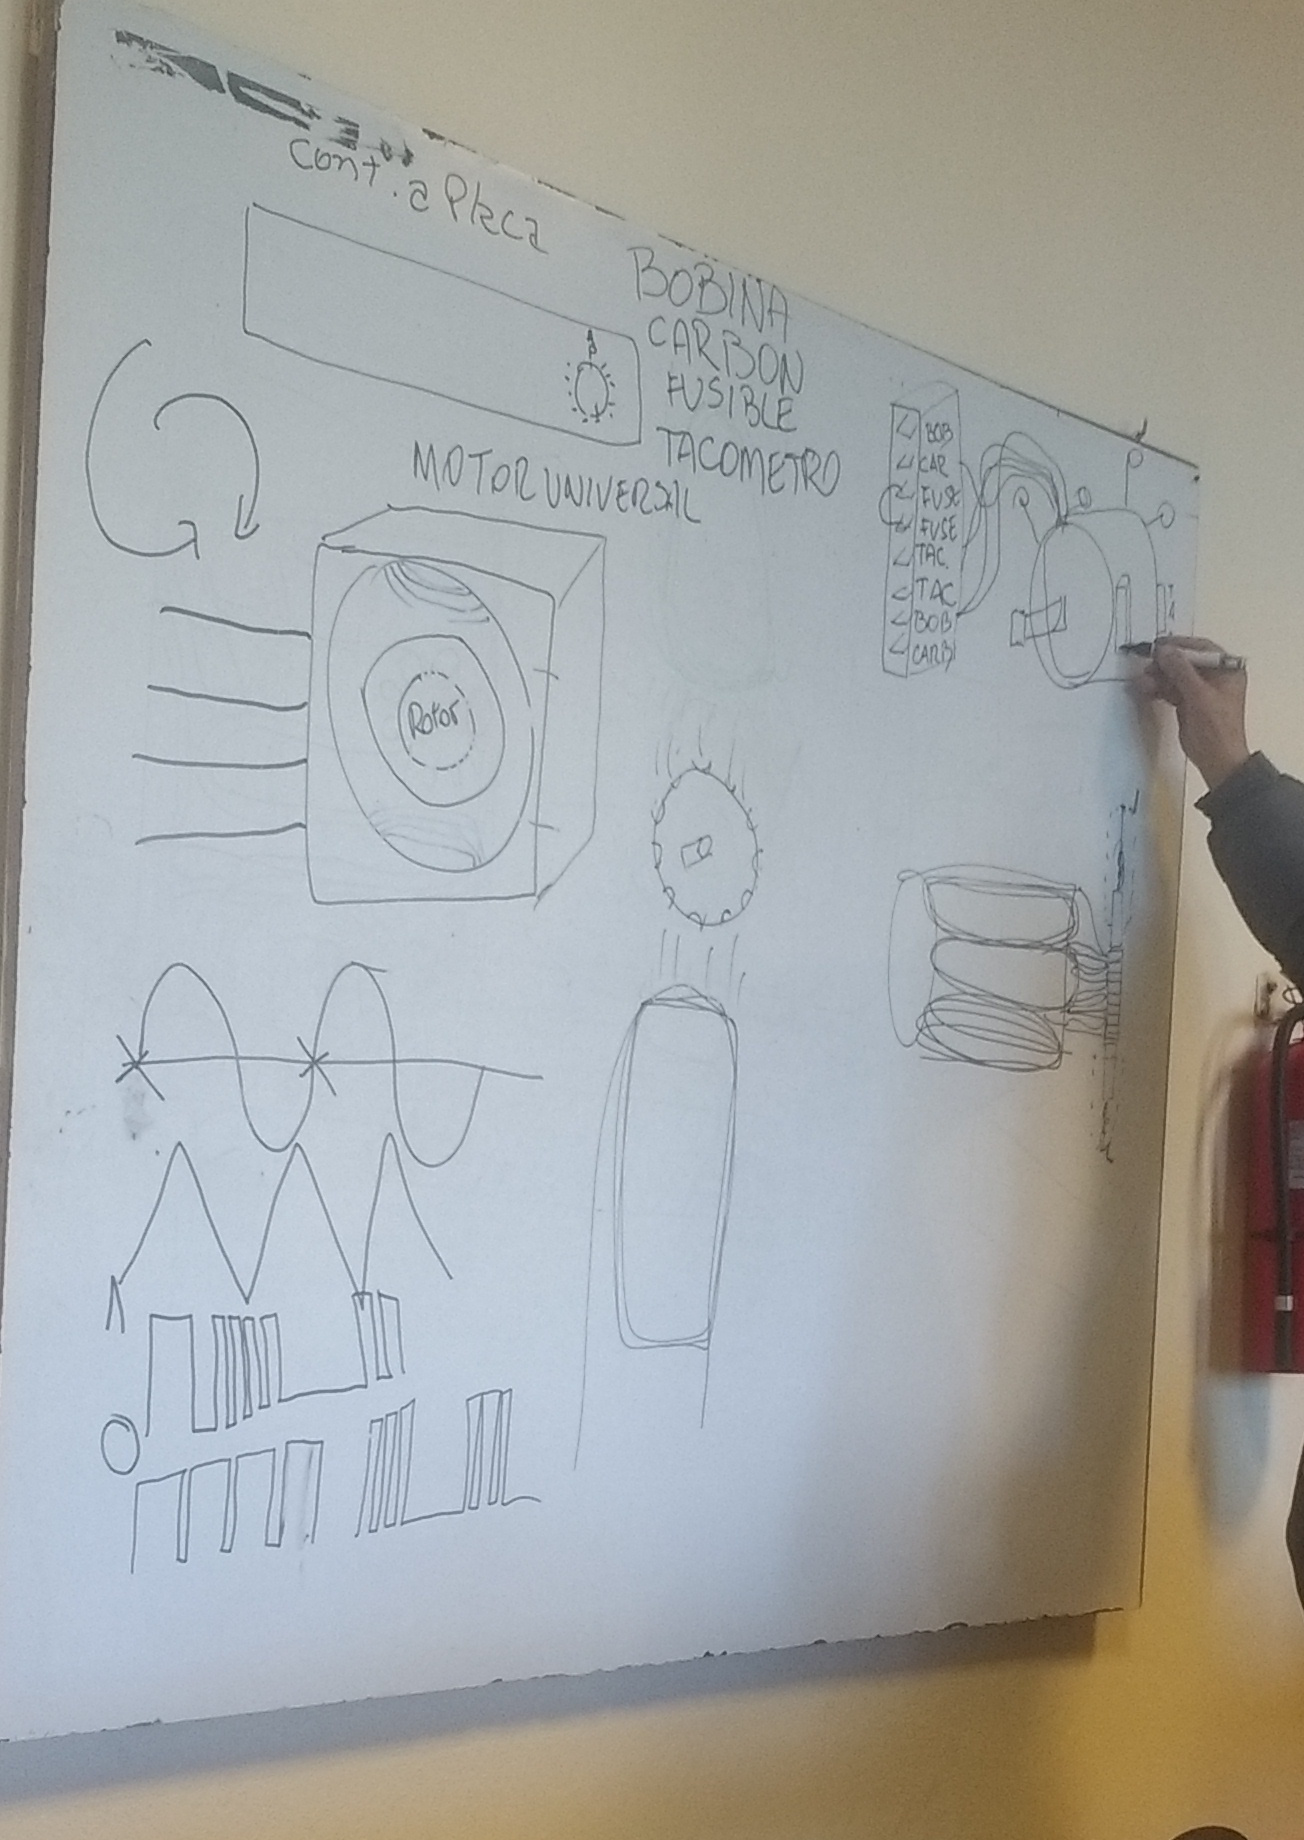 Cont. a Placa
BOBINA
CARBON
FUSIBLE
TACOMETRO
MOTOR UNIVERSAL
BOB
CAR
FUSE
FUSE
TAC.
TAC
BOB
CARB
Rotor
1
0